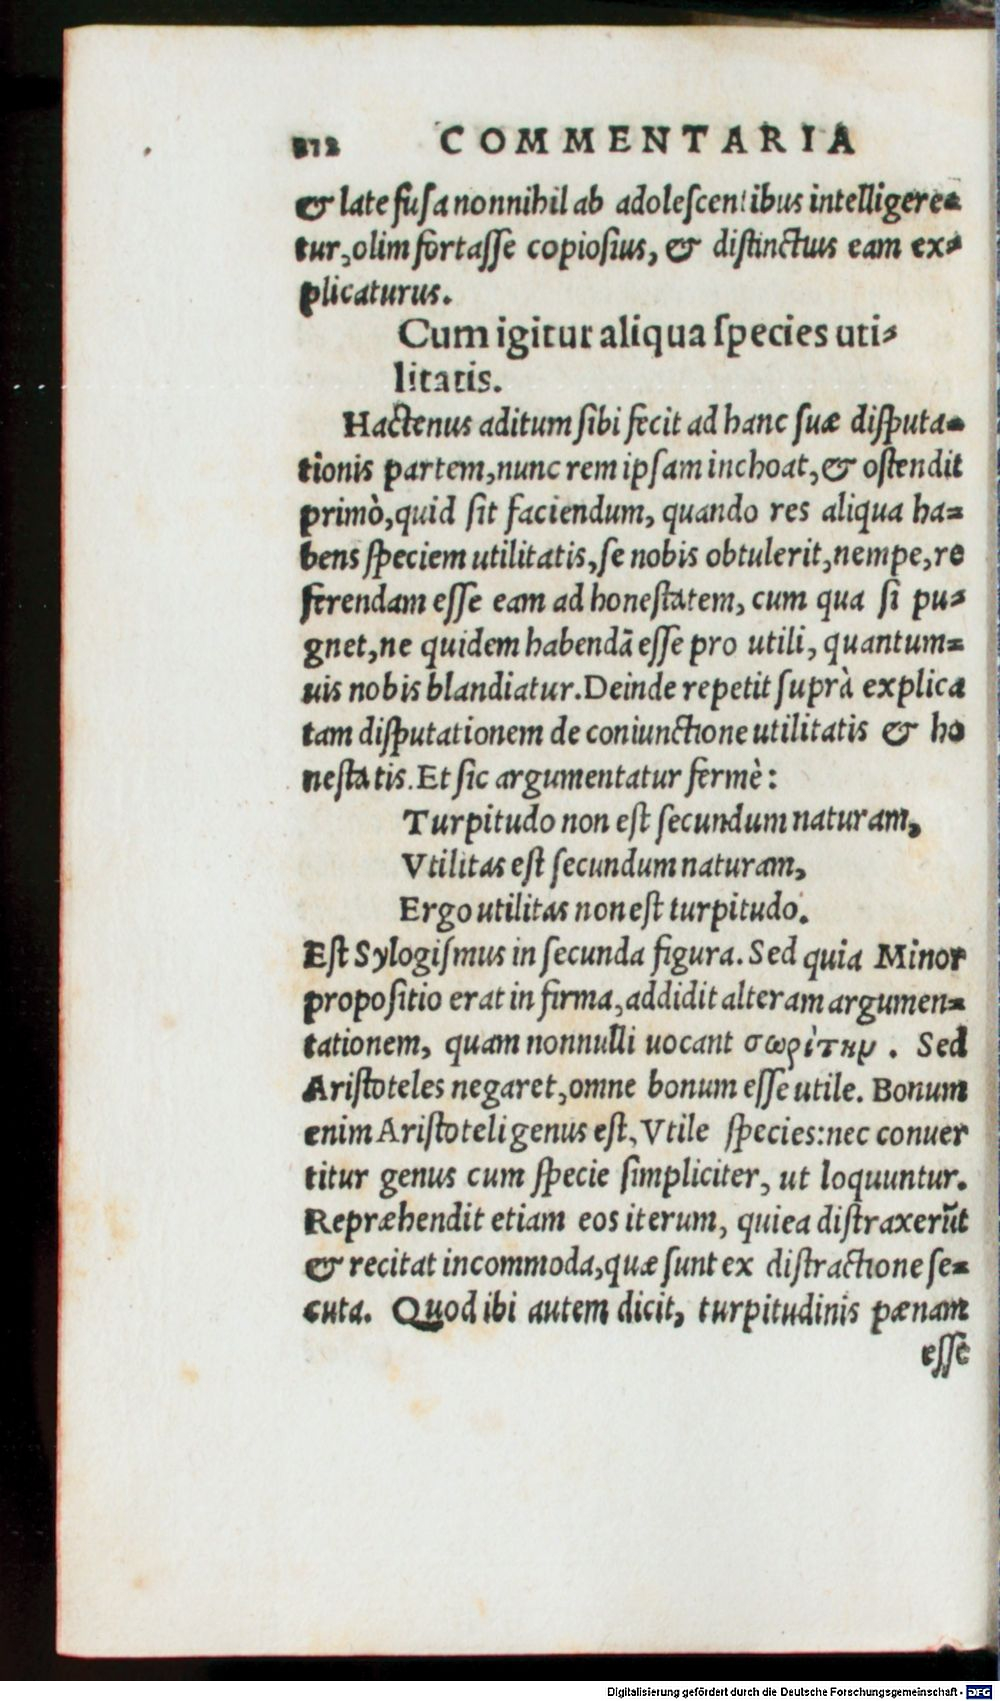 212 COMMENTARIA
& late fusa nonnihil ab adolescentibus intelligere-
tur, olim fortasse copiosius, & distinctius eam ex-
plicaturus.
Cum igitur aliqua species uti-
litatis.
Hactenus aditum sibi fecit ad hanc suæ disputa-
tionis partem, nunc rem ipsam inchoat, & ostendit
primò, quid sit faciendum, quando res aliqua ha-
bens speciem utilitatis, se nobis obtulerit, nempe, re
ferendam esse eam ad honestatem, cum qua si pu-
gnet, ne quidem habendā esse pro utili, quantum-
uis nobis blandiatur. Deinde repetit suprà explica
tam disputationem de coniunctione utilitatis & ho
nestatis. Et sic argumentatur fermè:
Turpitudo non est secundum naturam,
Vtilitas est secundum naturam,
Ergo utilitas non est turpitudo.
Est Sylogismus in secunda figura. Sed quia Minor
propositio erat in firma, addidit alteram argumen-
tationem, quam nonnulli uocant σωρὶτην. Sed
Aristoteles negaret, omne bonum esse utile. Bonum
enim Aristoteli genus est, Vtile species: nec conuer
titur genus cum specie simpliciter, ut loquuntur.
Repræhendit etiam eos iterum, qui ea distraxerūt
& recitat incommoda, quæ sunt ex distractione se-
cuta. Quod ibi autem dicit, turpitudinis pænam
esse
Digitalisierung gefördert durch die Deutsche Forschungsgemeinschaft - DFG